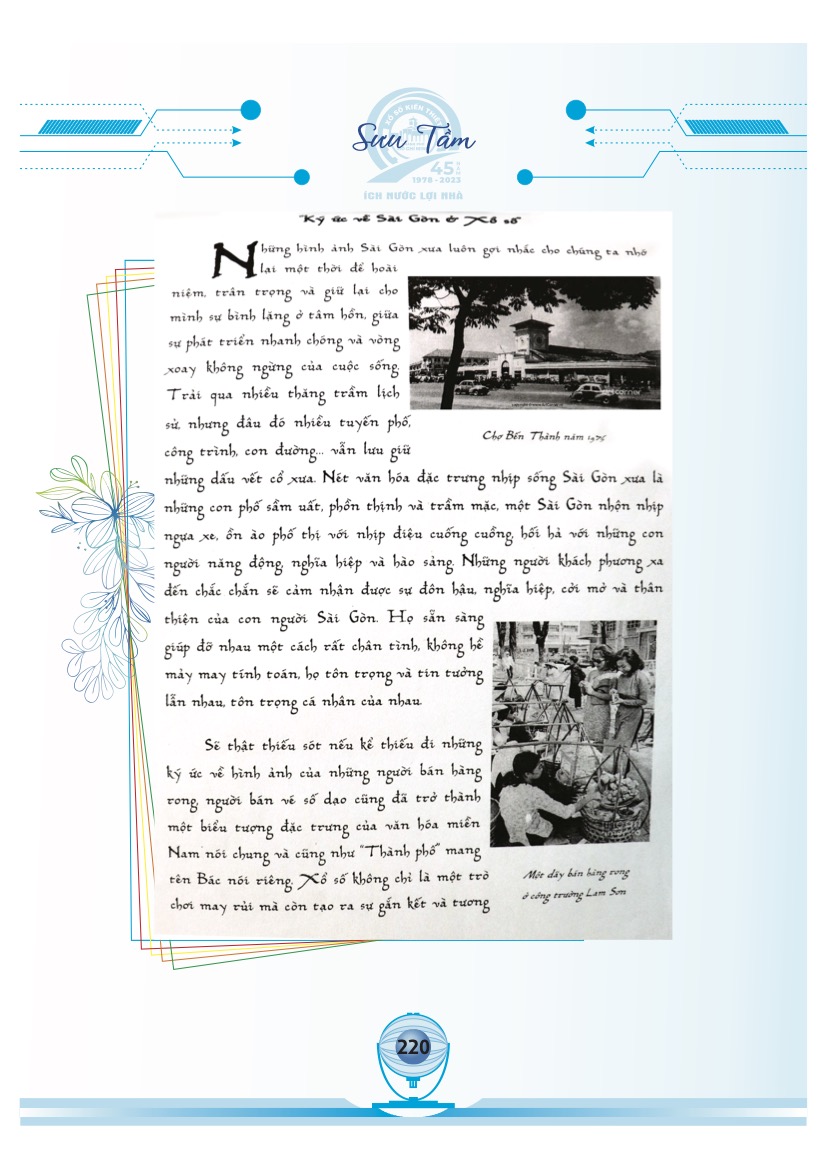 XỔ SỐ KIẾN THIẾT
Sưu Tầm
45 NĂM
1978 - 2023
ÍCH NƯỚC LỢI NHÀ
"Ký ức về Sài Gòn & Xổ số"
Những hình ảnh Sài Gòn xưa luôn gợi nhắc cho chúng ta nhớ
lại một thời để hoài
niệm, trân trọng và giữ lại cho
mình sự bình lặng ở tâm hồn, giữa
sự phát triển nhanh chóng và vòng
xoay không ngừng của cuộc sống.
Trải qua nhiều thăng trầm lịch
sử, nhưng đâu đó nhiều tuyến phố,
công trình, con đường... vẫn lưu giữ
những dấu vết cổ xưa. Nét văn hóa đặc trưng nhịp sống Sài Gòn xưa là
những con phố sầm uất, phồn thịnh và trầm mặc, một Sài Gòn nhộn nhịp
ngựa xe, ồn ào phố thị với nhịp điệu cuống cuồng, hối hả với những con
người năng động, nghĩa hiệp và hào sảng. Những người khách phương xa
đến chắc chắn sẽ cảm nhận được sự đôn hậu, nghĩa hiệp, cởi mở và thân
thiện của con người Sài Gòn. Họ sẵn sàng
giúp đỡ nhau một cách rất chân tình, không hề
mảy may tính toán, họ tôn trọng và tin tưởng
lẫn nhau, tôn trọng cá nhân của nhau.
Chợ Bến Thành năm 1975
Sẽ thật thiếu sót nếu kể thiếu đi những
ký ức về hình ảnh của những người bán hàng
rong, người bán vé số dạo cũng đã trở thành
một biểu tượng đặc trưng của văn hóa miền
Nam nói chung và cũng như "Thành phố" mang
tên Bác nói riêng. Xổ số không chỉ là một trò
chơi may rủi mà còn tạo ra sự gắn kết và tương
Một dãy bán hàng rong
ở công trường Lam Sơn
220